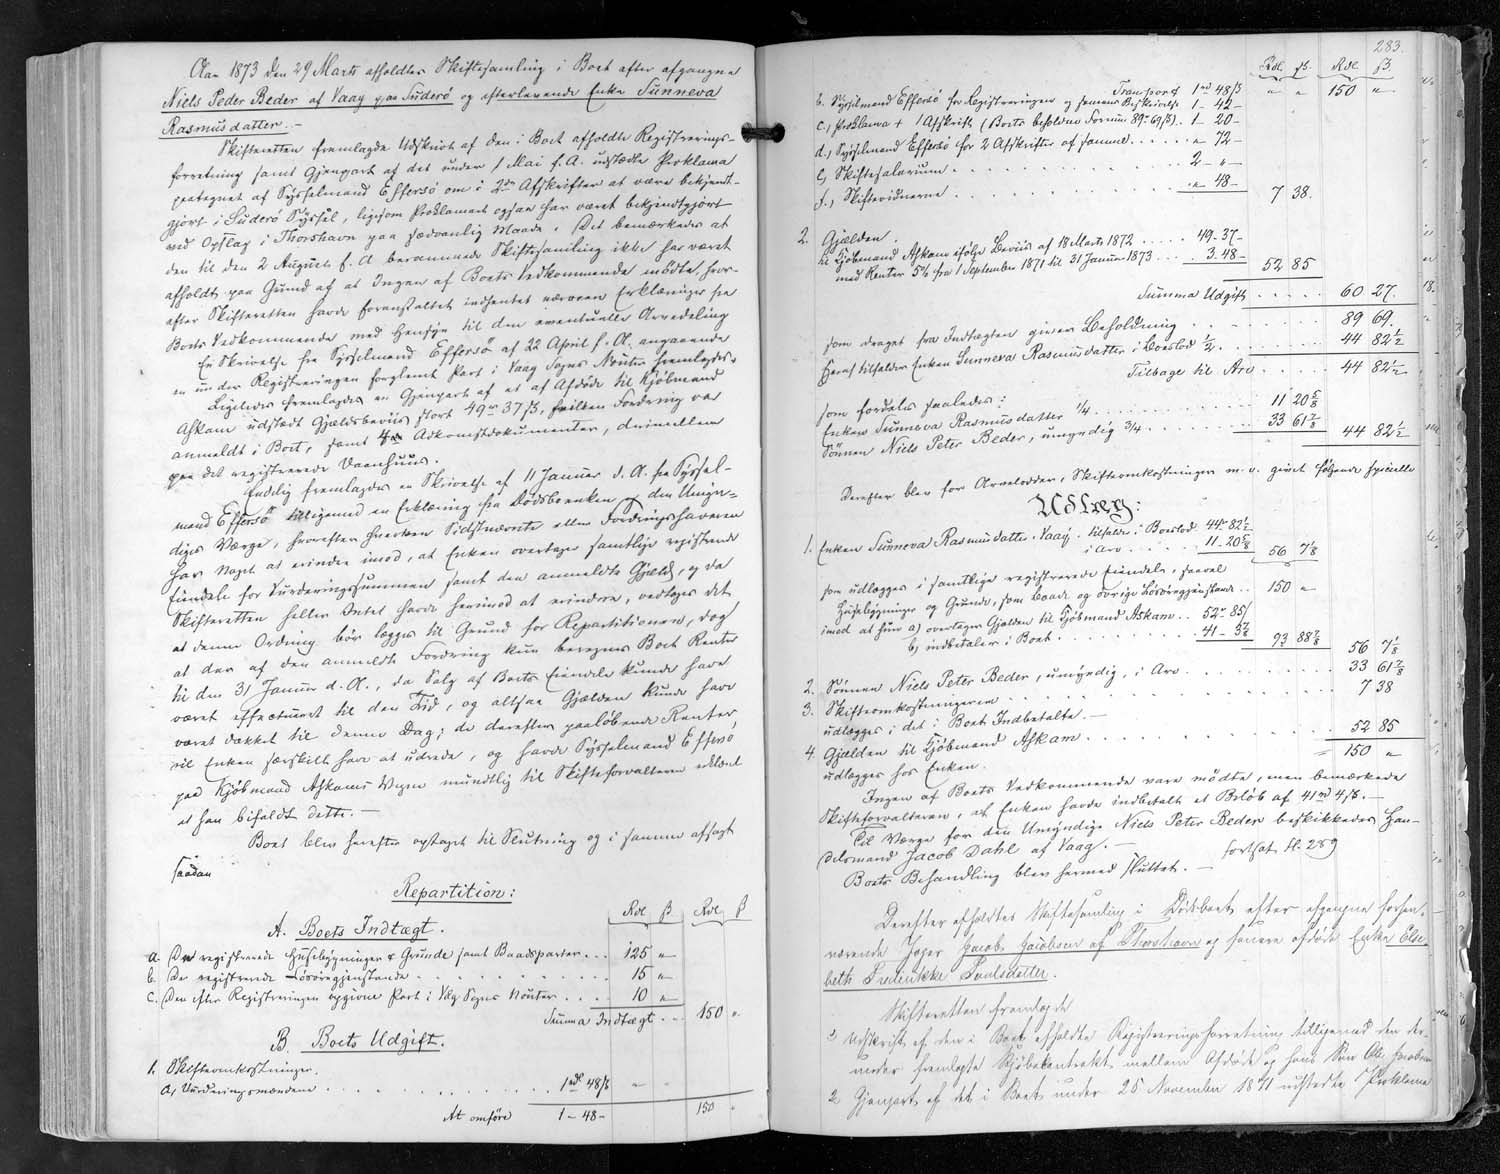 Aar 1873 den 29 Marts afholdtes Skiftesamling i Boet efter afgangne
Niels Peder Beder af Vaag paa Suderö og efterlevende Enke Sunneva
Rasmusdatter. —
Skifteretten fremlagde Udskrivt af den i Boet afholdte Registrerings-
forretning samt Gjenpart af det under 1 Mai f. A. udstædte Proklama
paategnet af Sysselmand Effersö om i 2de Afskrifter at være bekjendt-
gjort i Suderö Syssel, ligesom Proklamaet ogsaa har været bekjendtgjort
ved Opslag i Thorshavn paa sædvanlig Maade. Det bemærkedes at
den til den 2 August f. A. berammede Skiftesamling ikke har været
afholdt paa Grund af at Ingen af Boets Vedkommende mödte, hvor-
efter Skifteretten havde foranstaltet indhentet nærværen Erklæringer fra
Boets Vedkommende med Hensyn til den eventuelle Arvedeling
En Skrivelse fra Sysselmand Effersö af 22 April f. A. angaaende
en under Registreringen forglemt Part i Vaag Sogns Nouter fremlagdes.
Ligeledes fremlagdes en Gjenpart af et af Afdöde til Kjöbmand
Askam udstædt Gjældsbeviis stort 49 rd 37 ß, hvilken Fordring var
anmeldt i Boet, samt 4 Adkomstdokumenter, deriimellem
paa det registrerede Vaanhuus.
Endelig fremlagdes en Skrivelse af 11 Januar d. A. fra Syssel-
mand Effersö tilligemed en Erklæring fra Dödsboenken og den Umyn-
diges Værge, hvorefter hverken Sidstnævnte eller Fordringshaveren
har Noget at erindre imod, at Enken overtager samtlige registrerede
Eiendele for Vurderingssummen samt den anmeldte Gjæld, og da
Skifteretten heller Intet havde herimod at erindre, vedtoges det
at denne Ordning bör lægges til Grund for Repartitionen, dog
at der af den anmeldte Fordring kun beregnes Boet Renter
til den 31 Januar d. A., da Salg af Boets Eiendele kunde have
været effectueret til den Tid, og altsaa Gjælden kunde have
været dækket til denne Dag; de derefter paalöbende Renter
vil Enken særskilt have at udrede, og havde Sysselmand Effersö
paa Kjöbmand Askams Vegne mundtlig til Skifteforvalteren erklæret
at han bifaldt dette. —
Boet blev herefter optaget til Slutning og i samme afsagt
saadan
Repartition:
Rdl ß Rdl ß
A. Boets Indtægt.
a. De registrerede Husebygninger & Grunde samt Baadsparter ... 125 "
b. De registrerede Lösöregjenstande . . . . 15 "
c. Den efter Registreringen opgivne Part i Vaag Sogns Nöuter . . . . 10 "
Summa Indtægt . . . 150 "
B. Boets Udgift.
1. Skifteomkostninger.
a, Vurderingsmændene . . . . 1 rdl 48 ß " "
At omföre 1 – 48 – 150 "
283.
Rdl ß. Rdl ß
Transport 1 rd 48 ß " " 150 "
b. Sysselmand Effersö for Registreringen og sammes Beskrivelse 1 – 42 –
c., Proklama + 1 Afskrift (Boets beholdne Formue 89 – 69 ß) . 1 – 20 –
d., Sysselmand Effersö for 2 Afskrifter af samme . . . . . " 72 –
e, Skiftesalarium . . . . 2 – " –
f., Skiftevidnerne . . . . " 48 – 7 38.
2. Gjælden.
til Kjöbmand Askam ifölge Beviis af 18 Marts 1872 . . . . . 49 – 37 –
med Renter 5% fra 1 September 1871 til 31 Januar 1873 . . . . 3. 48 – 52 85
Summa Udgift . . . . . 60 27.
som draget fra Indtægten giver Beholdning . . . . 89 69.
Heraf tilfalder Enken Sunneva Rasmusdatter i Boeslod ½ . . . . 44 82½
Tilbage til Arv . . . . . 44 82½
som fordeles saaledes:
Enken Sunneva Rasmusdatter ¼ . . . . 11 20 5/8
Sönnen Niels Peter Beder, umyndig ¾ . . . . 33 61 7/8 44 82½
Derefter blev for Arvelodder, Skifteomkostninger m. v. givet fölgende specielle
Udlæg:
1. Enken Sunneva Rasmusdatter i Vaag, tilfalder i Boeslod 44 rd 82½
i Arv . . . . . 11 – 20 5/8 56 7 1/8
som udlægges i samtlige registrerede Eiendele, saavel
Husebygninger og Grunde, som Baade og övrige Lösöregjenstande . . 150 "
imod at hun a) overtager Gjælden til Kjöbmand Askam . . 52 rd 85 ß
b) indbetaler i Boet . . . . 41 – 3 7/8 93 88 7/8 56 7 1/8
2. Sönnen Niels Peter Beder, umyndig, i Arv . . . . 33 61 7/8
3. Skifteomkostningerne . . . . 7 38
udlægges i det i Boet Indbetalte. —
4. Gjælden til Kjöbmand Askam . . . . 52 85
udlægges hos Enken. 150 "
Ingen af Boets Vedkommende vare mödte, men bemærkede
Skifteforvalteren, at Enken havde indbetalt et Belöb af 41 rd 4 ß. —
Til Værge for den Umyndige Niels Peter Beder beskikkedes Han-
delsmand Jacob Dahl af Vaag. —
fortsat fl. 289
Boets Behandling blev hermed sluttet. —
Derefter afholdtes Skiftesamling i Dödsboet efter afgangne forhen-
værende Jæger Jacob Jacobsen af Thorshavn og senere afdöde Enke Else-
beth Frederikke Poulsdatter.
Skifteretten fremlagde
1 Udskrift af den i Boet afholdte Registreringsforretning tilligemed den der-
under fremlagte Kjöbekontrakt mellem Afdöde og hans Sön Ole Jacobsen
2 Gjenpart af det i Boet under 25 November 1871 udstedte Proklama